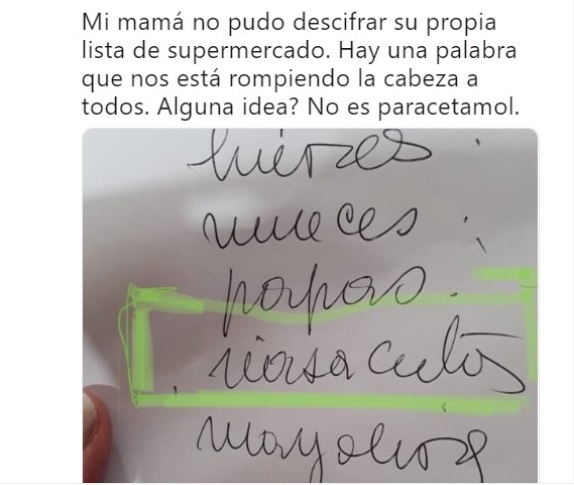 Mi mamá no pudo descifrar su propia
lista de supermercado. Hay una palabra
que nos está rompiendo la cabeza a
todos. Alguna idea? No es paracetamol.
nueces
papas.